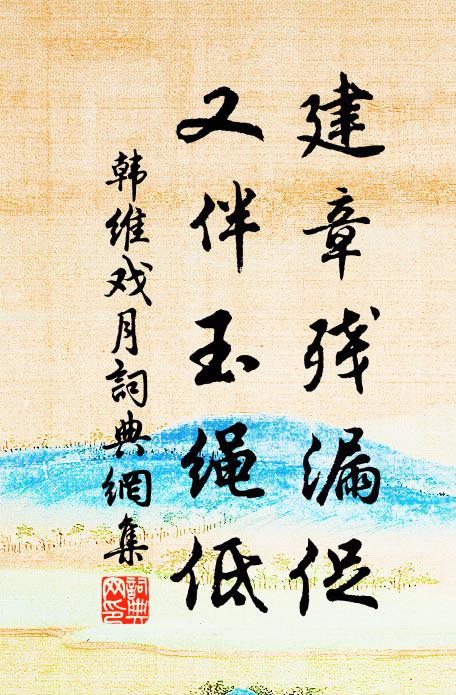 建章残漏促
又伴玉绳低
韩维戏月詞典網集
詞典网印